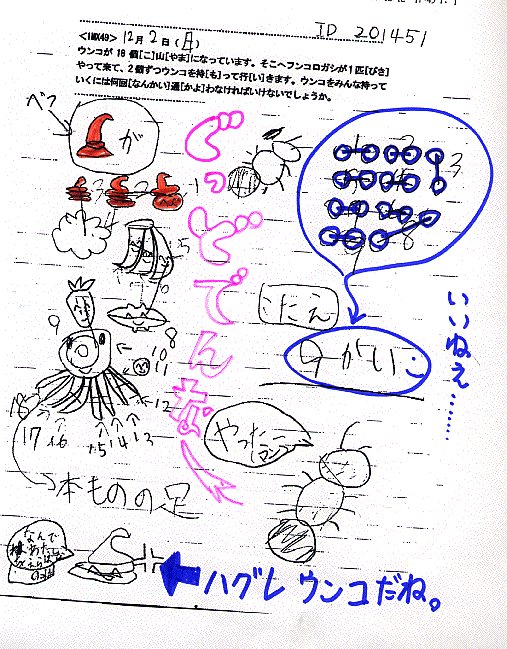 ID 201451
<IMX49> 12月2日(日)
ウンコが 18 個[こ]山[やま]になっています。そこへフンコロガシが1匹[ぴき]
やって来て、2個ずつウンコを持[も]って行[い]きます。ウンコをみんな持って
いくには何回[なんかい]通[かよ]わなければいけないでしょうか。
が
ぐっどでんな〜
1
2
3
4
5
8
9
10
11
12
13
14
15
16
17
18
本ものの足
こたえ
9かい
いいねえ……
やったー
なんで
ハグレウンコだね。